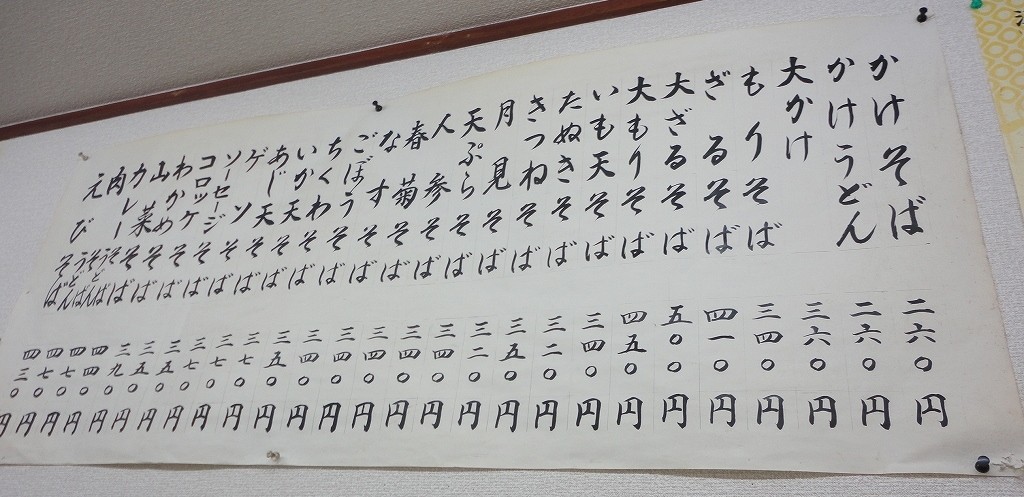 かけそば 二六〇円
かけうどん 二六〇円
大かけ 三六〇円
もりそば 三四〇円
ざるそば 四一〇円
大ざるそば 五〇〇円
大もりそば 四五〇円
いも天そば 三四〇円
たぬきそば 三二〇円
きつねそば 三五〇円
月見そば 三二〇円
天ぷらそば 三四〇円
人参そば 三四〇円
春菊そば 三四〇円
なすそば 三四〇円
ごぼうそば 三四〇円
ちくわそば 三五〇円
いか天そば 三七〇円
あじ天そば 三七〇円
ゲソそば 三七〇円
ソーセージそば 三五〇円
コロッケそば 三五〇円
わかめそば 三九〇円
山菜そば 四四〇円
カレーそばうどん 四七〇円
肉そばうどん 四七〇円
えびそば 四三〇円